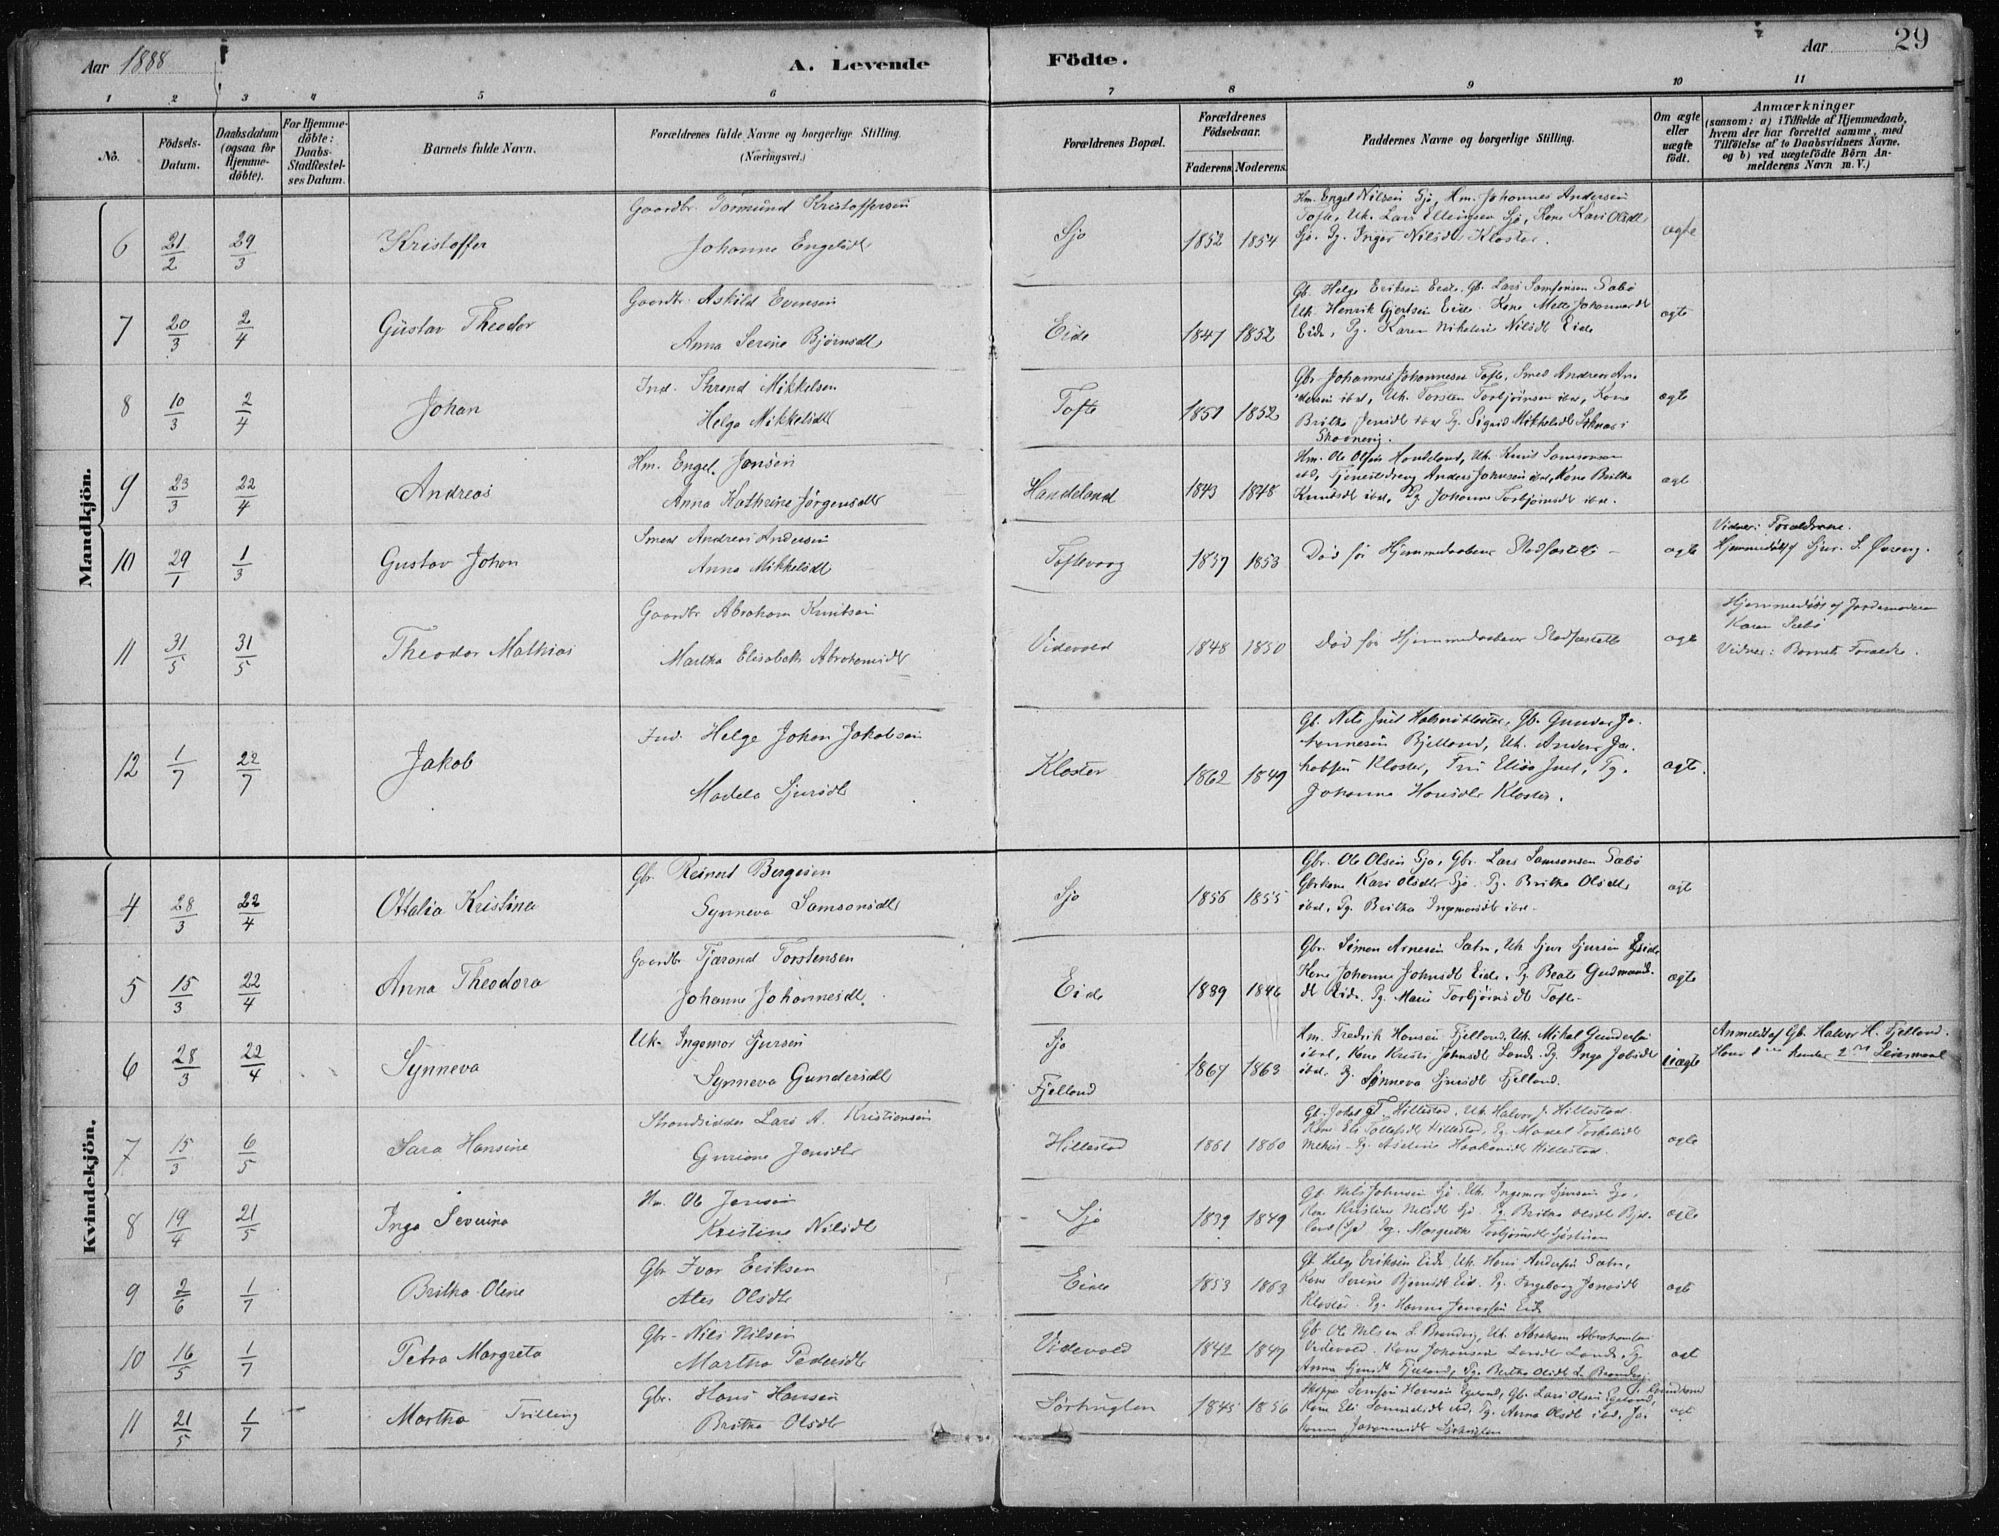 Aar 1888
A. Levende Födte.
Aar
29
1 2 3 4 5 6 7 8 9 10 11
No.
Födsels-Datum.
Daabsdatum (ogsaa for Hjemmedöbte).
For Hjemmedöbte: Daabs-Stadfæstelses Datum.
Barnets fulde Navn.
Forældrenes fulde Navne og borgerlige Stilling. (Næringsvei.)
Forældrenes Bopæl.
Forældrenes Födselsaar.
Faderens. Moderens.
Faddernes Navne og borgerlige Stilling.
Om ægte eller uægte födt.
Anmærkninger (saasom: a) i Tilfælde af Hjemmedaab, hvem der har forrettet samme, med Tilföielse af to Daabsvidners Navne. og b) ved uægtefödte Börn Anmelderens Navn m.V.)
Mandkjön.
6 21/2 29/3 Kristoffer
Gaardbr. Tormund Kristoffersen
Johanne Engelsdt
Sjo 1852 1854
Hm. Engel Nilsen Sjo, Hm. Johannes Andersen
Tofte, Uk. Lars Ellingsen Sjo, Kone Kari Olsdt
Sjo. Pg. Inger Nilsdt Kloster.
ægte
7 20/3 2/4 Gustav Theodor
Gaardbr. Askild Evensen
Anna Serine Bjørnsdt
Eide 1847 1852
Gb. Helge Eriksen Eide, Gb. Lars Samsonsen Sæbø
Uk. Henrik Gjertsen Eide. Kone Mette Johannesdt
Eide, Pg. Karen Nikoline Nilsdt Eide
ægte
8 10/3 2/4 Johan
Ind. Thrond Mikkelsen
Helga Mikkelsdt
Tofte 1851 1852
Gbr. Johannes Johannesen Tofte, Smed Andreas An-
dersen ibd, Uk. Torsten Torbjørnsen ibd, Kone
Britha Jensdt ibd Pg. Sigrid Mikkelsdt
ægte
9 23/3 22/4 Andreas
Hm. Engel Jonsen
Anna Kathrine Jørgensdt
Handeland 1843 1848
Hm. Ole Olsen Handeland, Uk. Knut Samsonsen
ibd, Tjenestedreng Anders Johnsen ibd, Kone Britha
Knudsdt ibd, Pg Johanne Torbjørnsdt ibd.
ægte
10 29/1 1/3 Gustav Johan
Smed Andreas Andersen
Anna Mikkelsdt
Toftevaag 1839 1853
Død før Hjemmedaabens Stadfæstelse
ægte
Vidner: Forældrene.
Hjemmedøbt af Sjur S.
11 31/5 31/5 Theodor Mathias
Gaardbr Abraham Knutsen
Martha Elisabeth Abrahamsdt
Videvold 1848 1850
Død før Hjemmedaabens Stadfæstelse
ægte
Hjemmedøbt af Jordemoderen
Karen Sæbø
Vidner: Barnets Forældre.
12 1/7 22/7 Jakob
Ind. Helge Johan Jakobsen
Madela Sjursdt
Kloster 1862 1849
Gb. Nils Juel Halsnökloster, Gb. Gunnar Jo-
hannesen Bjelland, Uk. Anders Ja-
kobsen Kloster, Fru Elisa Juel, Pg.
Johanna Hansdt Kloster.
ægte.
Kvindekjön.
4 28/3 22/4 Ottalia Kristina
Gbr. Reinert Bergesen
Synneva Samsonsdt
Sjo 1856 1855
Gbr. Ole Olsen Sjo, Gbr. Lars Samsonsen Sæbø
Gbrkone Kari Olsdt Sjo. Pg. Britha Olsdt
ibd, Pg. Britha Ingemarsdt ibd.
ægte
5 15/3 22/4 Anna Theodora
Gaardbr Tjærand Torstensen
Johanne Johannesdt.
Eide 1839 1846
Gbr. Simon Arnesen Sætre, Uk. Sjur Sjursen Eide
Kone Johanne Johnsdt Eide, Pg Beate Gudmunds-
dt Eide. Pg. Marie Torbjørnsdt Tofte.
ægte
6 28/3 22/4 Synneva
Uk. Ingemar Sjursen
Synneva Gundersdt
Sjo
Fjelland
1867 1863
Hm. Fredrik Hansen Fjelland, Uk. Mikal Gundersen
ibd, Kone Kristi Johnsdt Lande. Pg. Inga Jobsdt
ibd. Pg. Synneva Sjursdt Fjelland.
uægte
Anmeldt af Gb. Halvor H. Fjelland.
Hans 1ste hendes 2det Leiermaal
7 15/3 6/5 Sara Hansine
Strandsidder Lars A. Kristiansen
Guriane Jonsdt
Hillestad 1861 1860
Kone Eli Tollefsdt Hillestad, Pg. Madel Torkelsdt
ægte
8 19/4 21/5 Inga Severina
Hm. Ole Jensen
Kristine Nilsdt
Sjo 1839 1849
Gb. Nils Johnsen Sjo. Uk. Ingemar Sjursen Sjo,
Kone Kristine Nilsdt Sjo. Pg Britha Olsdt
ægte
9 2/6 1/7 Britha Oline
Gbr Ivar Eriksen
Ales Olsdt
Eide 1853 1863
Gb Helge Eriksen Eide, Uk. Hans Andersen Sætre,
Kone Serine Bjørnsdt Eide. Pg. Ingeborg Jonsdt
Kloster. Pg. Hanna Eide
ægte
10 16/5 1/7 Petra Margreta
Gbr. Nils Nilsen
Martha Pedersdt
Videvold 1842 1847
Gb Ole Nilsen S. Brandvig, Uk. Abraham Abrahamsen
Videvold. Kone Johanna Larsdt Lande, Pg.
Anna Sjursdt Fjelland, Pg. Britha Olsdt S. Brandvig
ægt
11 21/5 1/7 Martha Tvilling
Gbr. Hans Hansen
Britha Olsdt
Sørhuglen 1845 1856
Hansen Egeland, Gb. Lars Olsen Egeland,
Kone Eli ibd, Pg. Anna Olsdt ibd, Jo-
hanna Johannesdt Sørhuglen
ægt